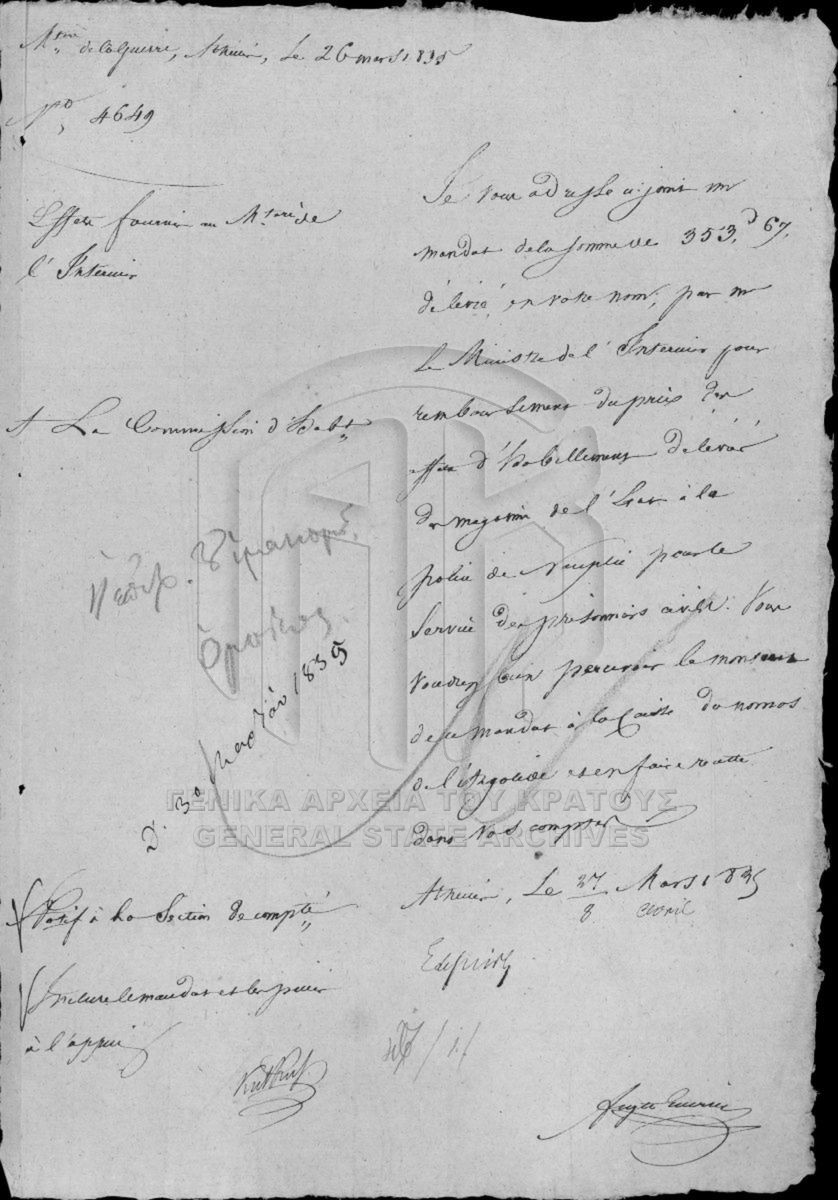 de la Guerre, Athènes, Le 26 mars 1835
No, 4649
Effets fournis au de
l'Intérieur
A La Commission d'Habt
30 1835
Notif à la Section de compté
Inclure le mandat et les pièces
à l'appui
Je vous adresse ci-joint un
mandat de la somme de 353,d 67,
délivré, en votre nom, par
Le Ministre de l'Intérieur pour
remboursement du prix des
effets d'habillement délivrés
du magasin de l'Etat à la
police de Nauplie pour le
service des prisonniers civils. Vous
voudrez bien percevoir le montant
de ce mandat à la Caisse du nomos
de l'Argolide et en faire recette
dans vos comptes
Athènes, Le 27/8 Mars/avril 1835
ΓΕΝΙΚΑ ΑΡΧΕΙΑ ΤΟΥ ΚΡΑΤΟΥΣ
GENERAL STATE ARCHIVES